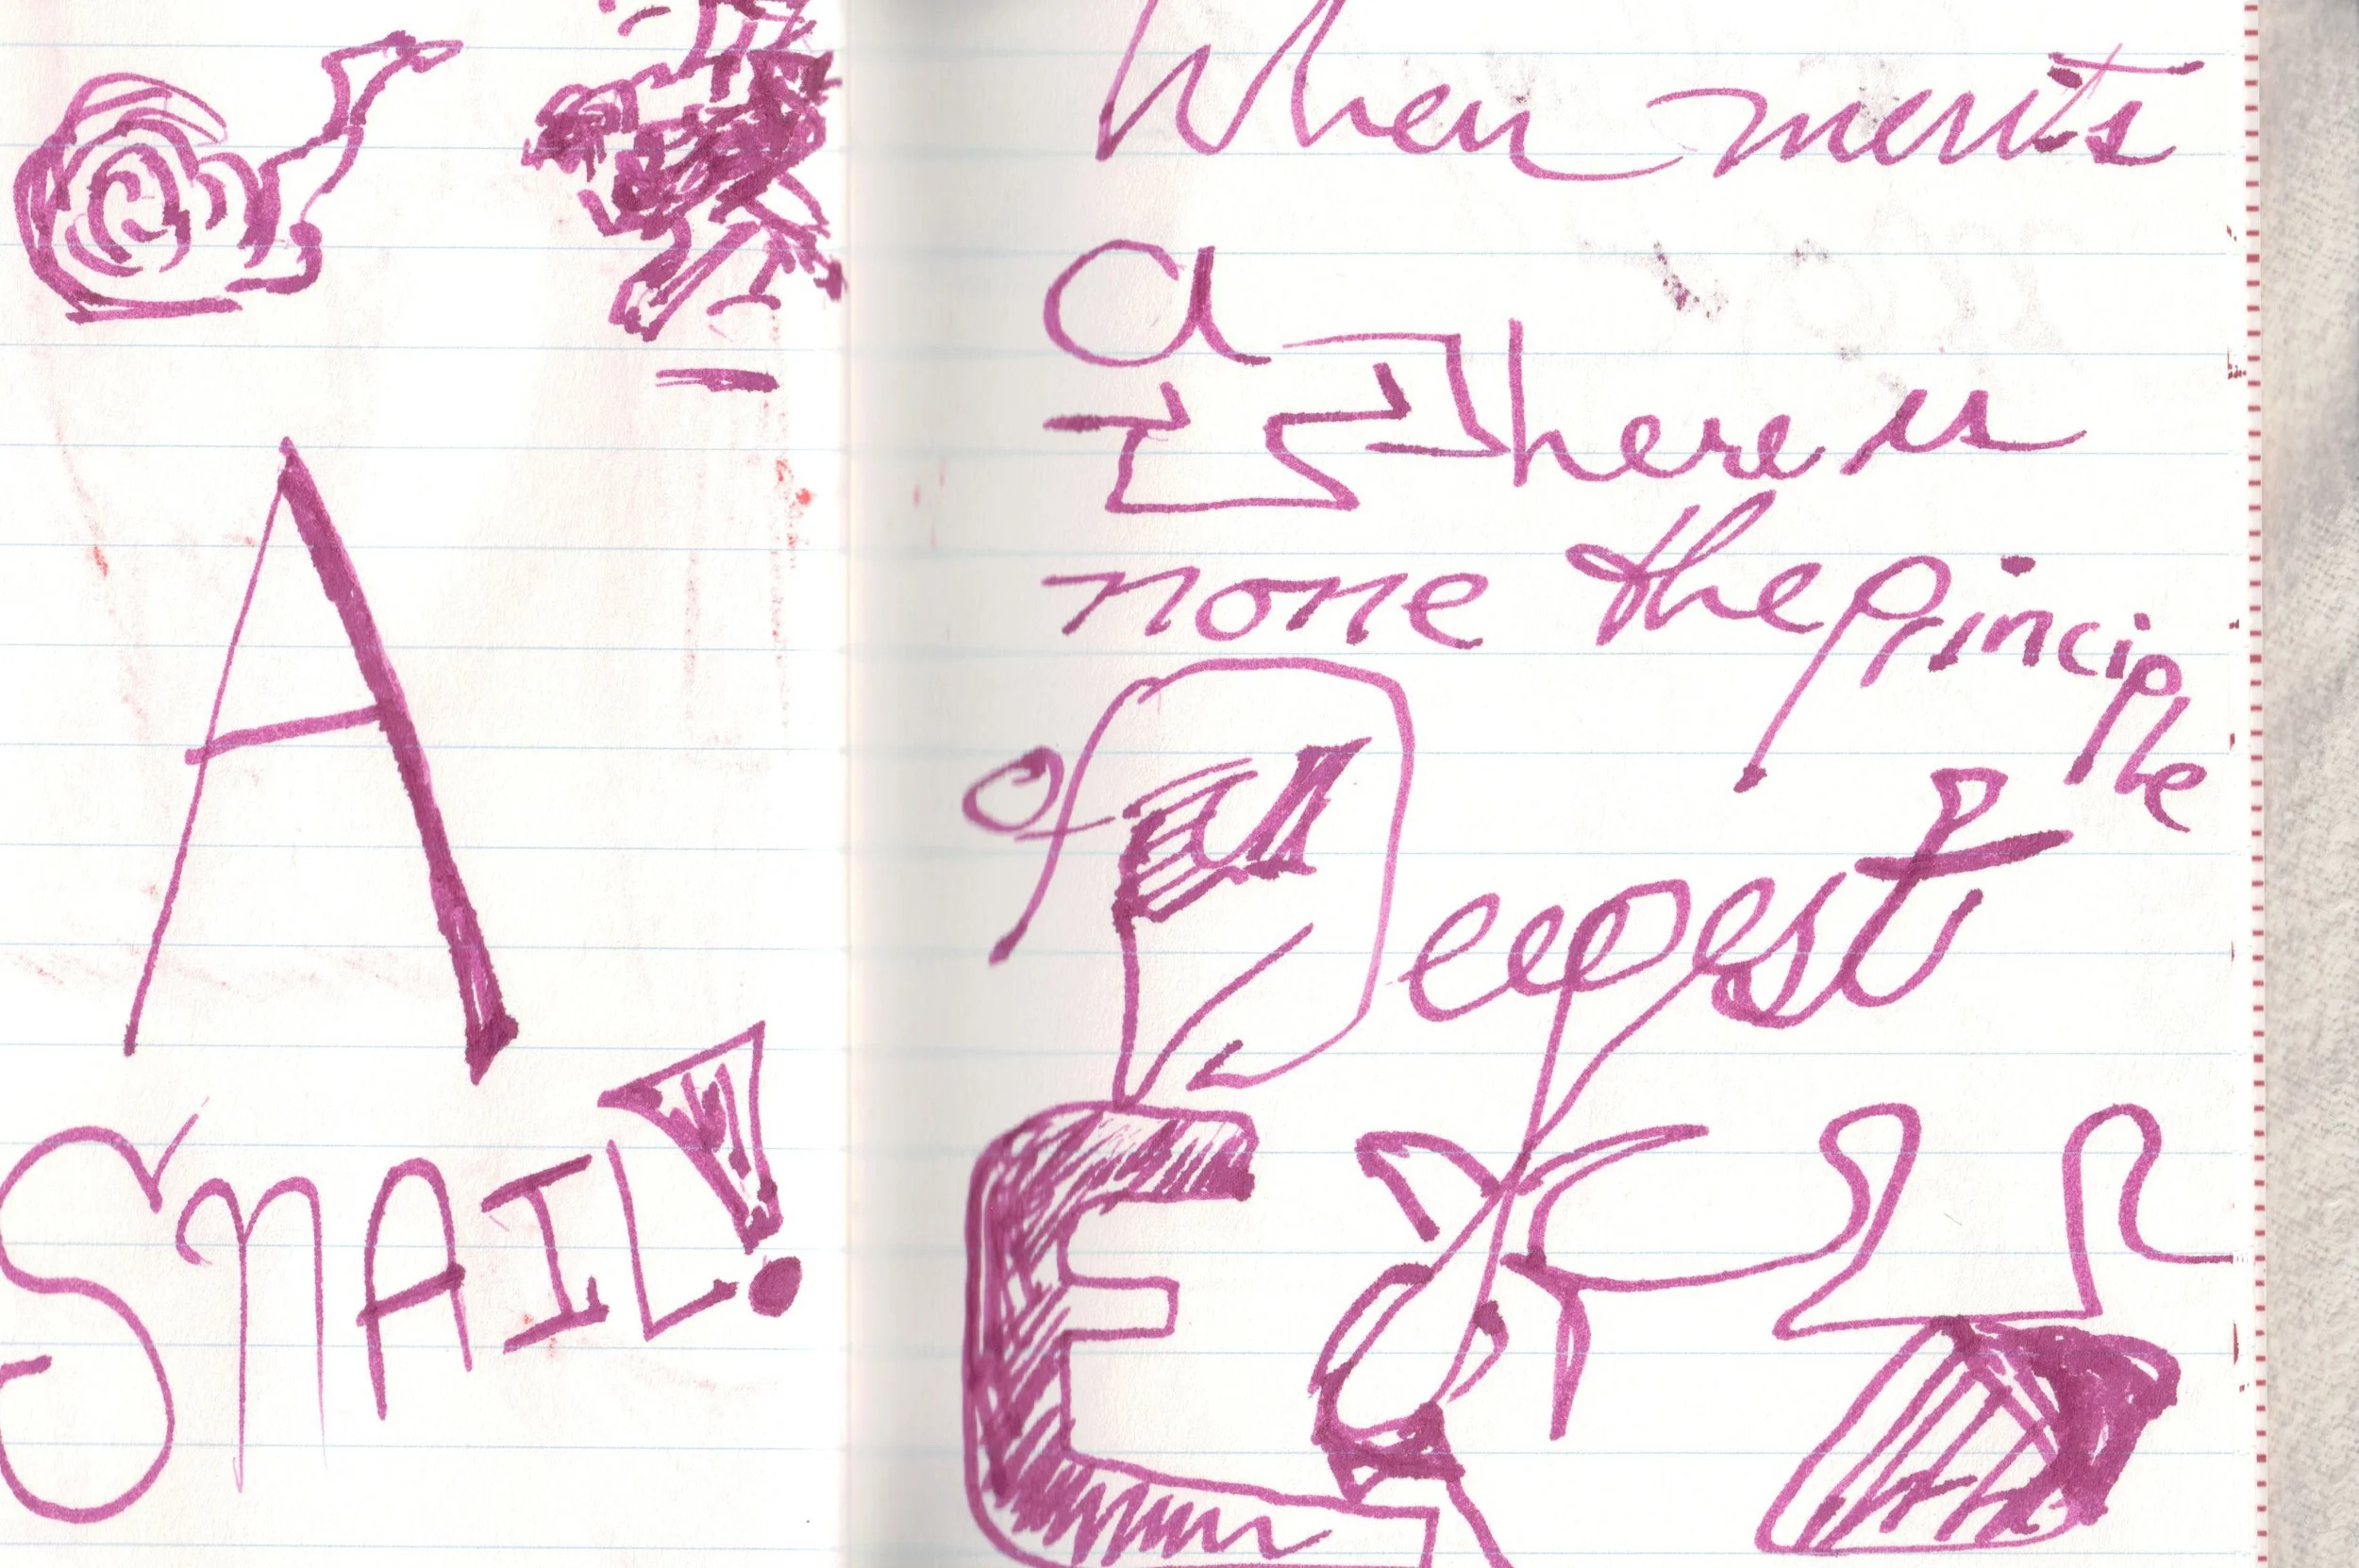 A
SNAIL!
When merits
a
There is
none the principle
of all
Deepest